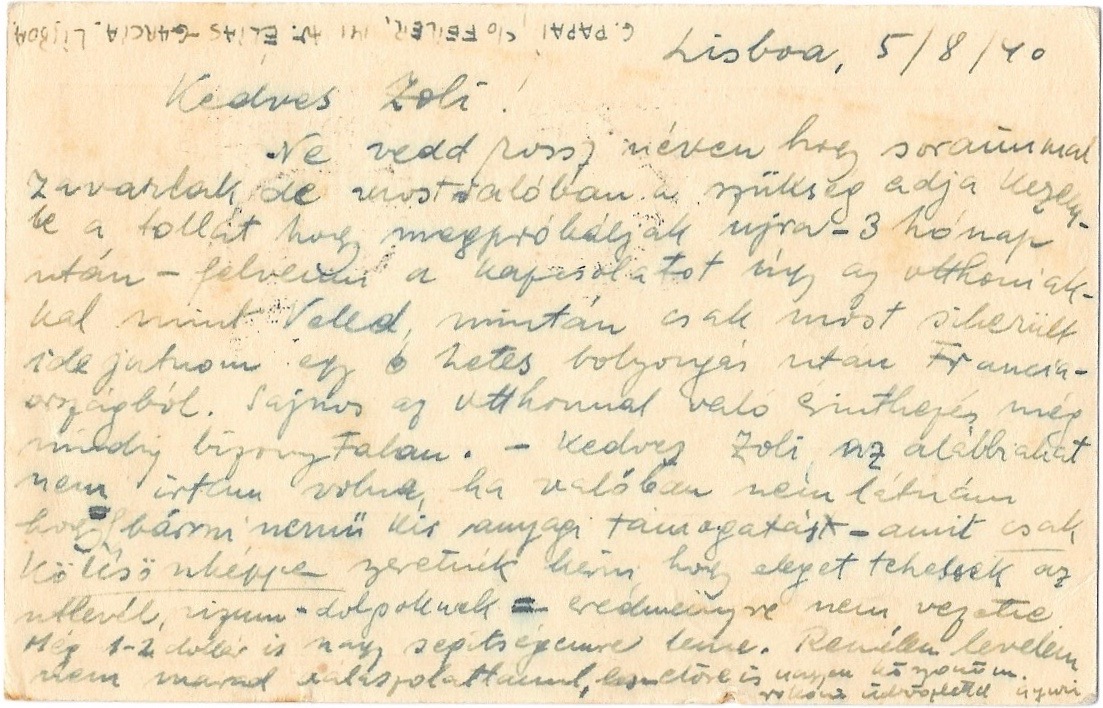 G. PAPAI, c/o FEILER, 141 Av. ELIAS-GARCIA, LISBOA.
Lisboa, 5/8/40
Kedves Zoli!
Ne vedd rossz néven hogy soraimmal
zavarlak, de most valóban a szükség adja kezem-
be a tollát hogy megpróbáljak ujra - 3 hónap
után - felvenni a kapcsolatot úgy az otthoniak-
kal mint Veled, miután csak most sikerült
ide jutnom egy 6 hetes bolyongás után Francia-
országból. Sajnos az otthonnal való érintkezés még
mindig bizonytalan. - Kedves Zoli, az alábbiakat
nem irtam volna, ha valóban nem látnám
hogy bárminemű kis anyagi támogatást - amit csak
kölcsönképpe szeretnék kérni hogy eleget tehessek az
utlevél, vizum-dolgoknak - eredményre nem vezetne
Még 1-2 dollár is nagy segitségemre lenne. Remélem levelem
nem marad válaszolatlanul, előre is nagyon köszönöm.
üdvözlettel Gyuri